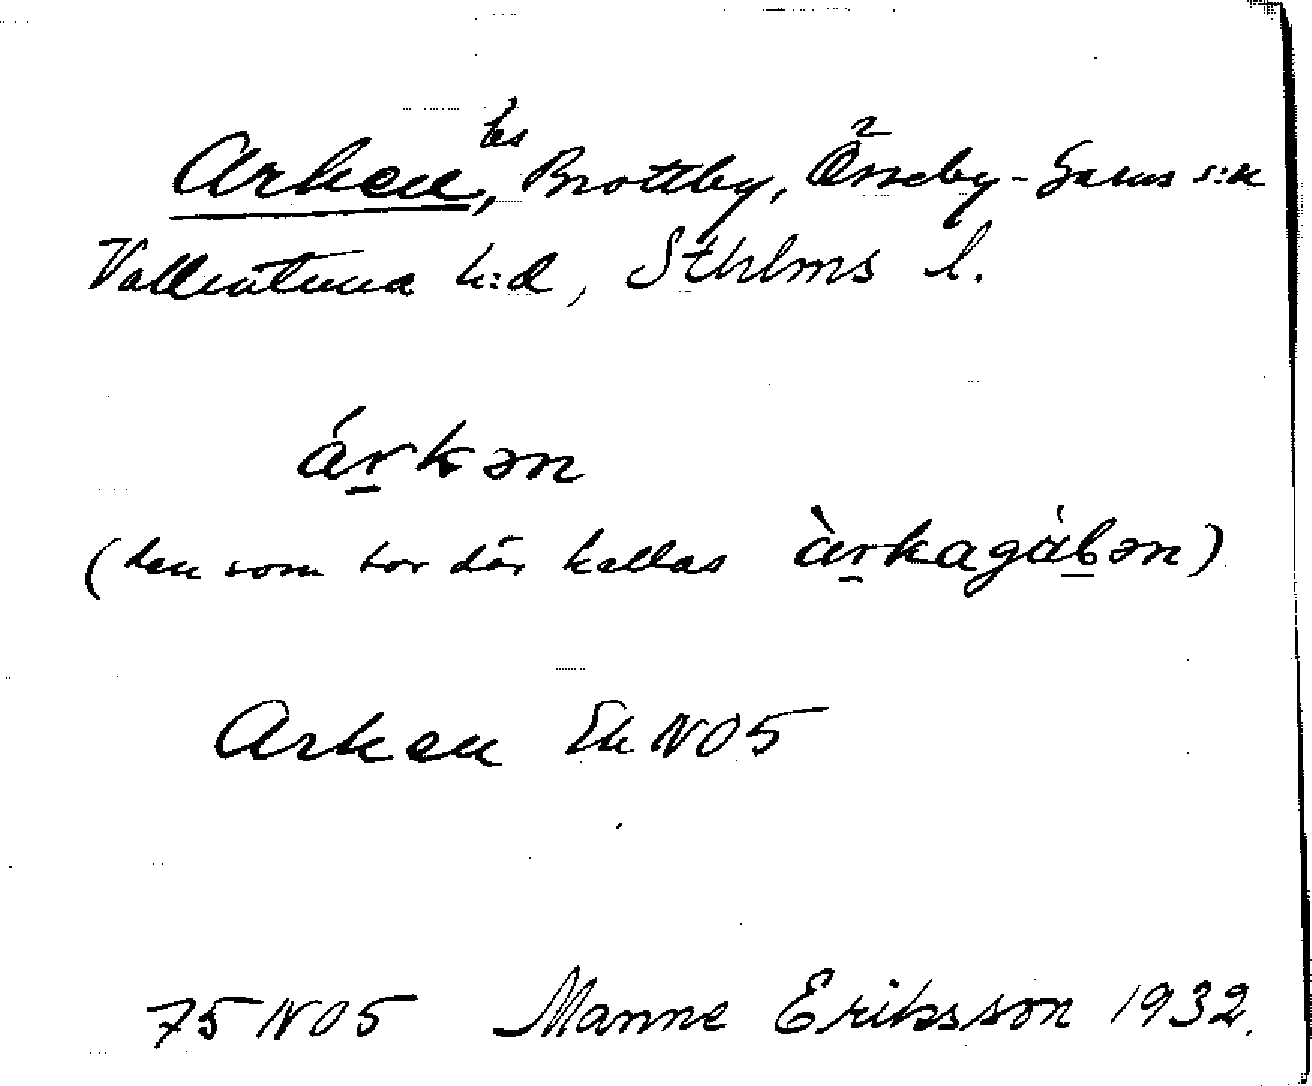 Arken, ls Brottby, Össeby-Garns s:n
Vallentuna h:d, Sthlms l.
árkən
(den som bor där kallas àrkagúbən)
Arken Ek NO5
75 NO5 Manne Eriksson 1932.